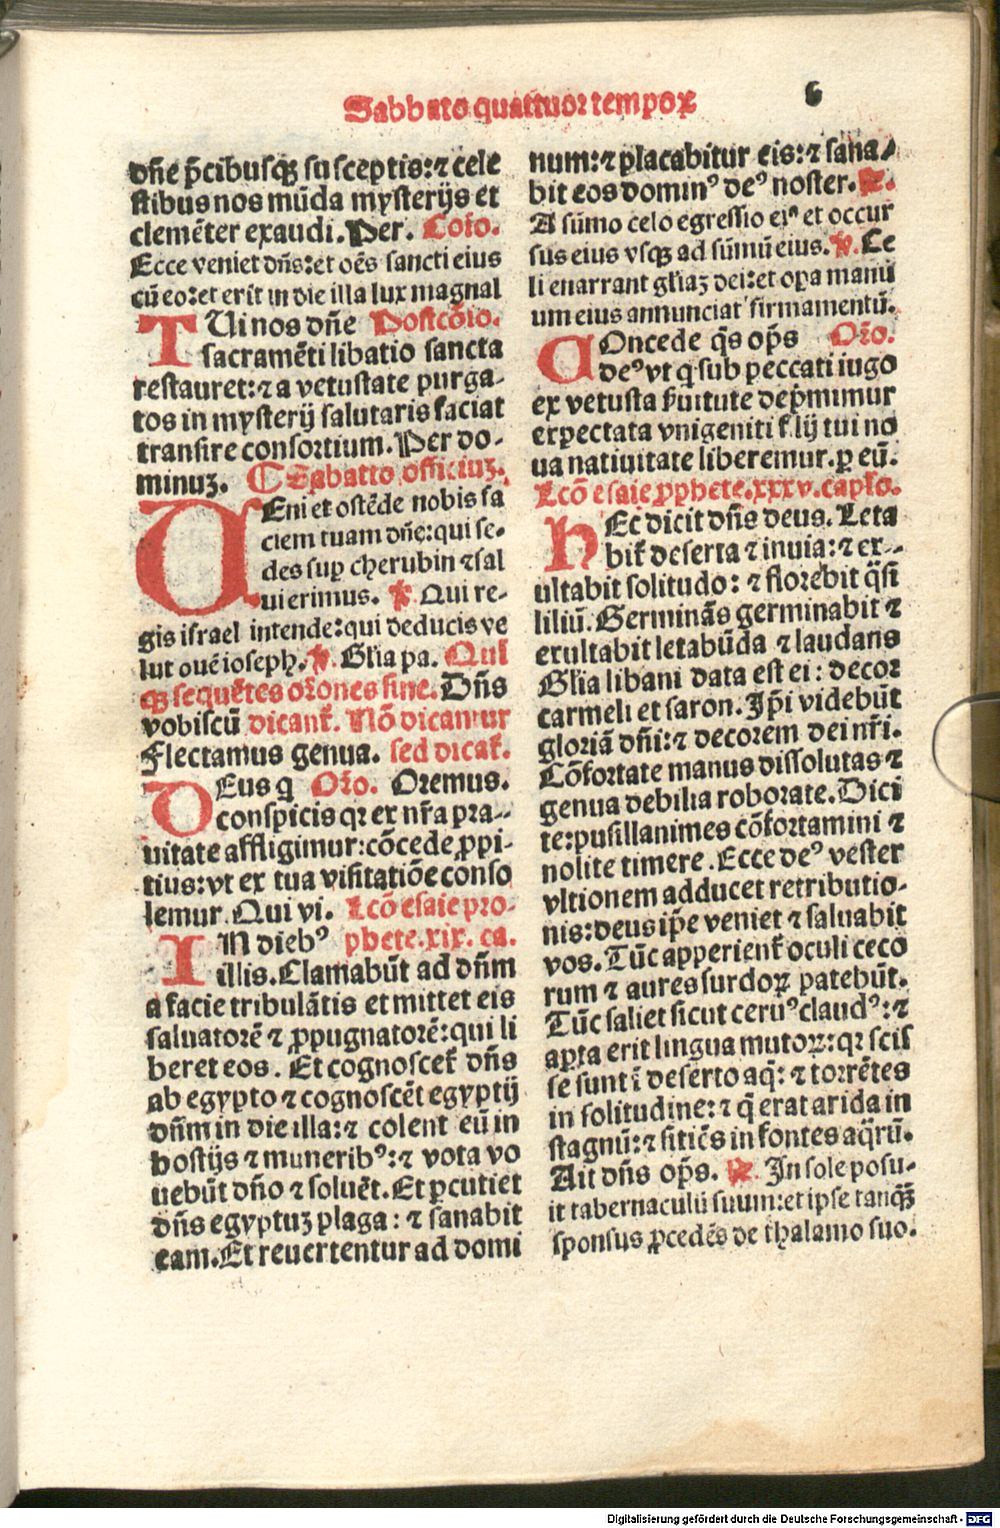 Sabbato quattuor tempoꝝ 6
dn̄e p̄cibusqꝫ susceptis:⁊ cele
stibus nos mūda mysterijs et
clemēter exaudi. Per. Cōio.
Ecce veniet dn̄s:et oēs sancti eius
cū eo:et erit in die illa lux magna
TUi nos dn̄e Postcōio.
sacramēti libatio sancta
restauret:⁊ a vetustate purga-
tos in mysterij salutaris faciat
transire consortium. Per do-
minuꝫ. ¶ Sabatto officiuꝫ.
UEni et ostēde nobis fa
ciem tuam dn̄e:qui se-
des suꝑ cherubin ⁊ sal
ui erimus. ps. Qui re-
gis israel intende:qui deducis ve
lut ouē ioseph. v. Glīa pa. Qul
qꝫ sequētes or̄ones sine. Dn̄s
vobiscū dicant᷑. Nō dicamur
Flectamus genua. sed dicat᷑.
DEus q Or̄o. Oremus.
conspicis qꝛ ex nr̄a pra-
uitate affligimur:cōcede ꝓpi-
tius:vt ex tua visitatiōe conso
lemur. Qui vi. Lcō esaie pro-
IN diebꝰ phete.xix. ca.
illis. Clamabūt ad dn̄m
a facie tribulātis et mittet eis
saluatorē ⁊ ꝓpugnatorē:qui li
beret eos. Et cognoscet᷑ dn̄s
ab egypto ⁊ cognoscēt egyptij
dn̄m in die illa:⁊ colent eū in
hostijs ⁊ muneribꝰ:⁊ vota vo
uebūt dn̄o ⁊ soluēt. Et ꝑcutiet
dn̄s egyptuꝫ plaga:⁊ sanabit
eam. Et reuertentur ad domi
num:⁊ placabitur eis:⁊ sana-
bit eos dominꝰ deꝰ noster. R.
A sūmo celo egressio eiꝰ et occur
sus eius vsqꝫ ad sūmū eius. v. Ce
li enarrant glīaꝫ dei:et oꝑa manu
um eius annunciat firmamentū.
COncede qs̄ op̄s Or̄o.
deꝰ vt q sub peccati iugo
ex vetusta ẜuitute dep̄mimur
expectata vnigeniti filij tui no
ua natiuitate liberemur. ꝑ eū.
Lcō esaie ꝓphete.xxxv.capl̄o.
HEc dicit dn̄s deus. Leta
bit᷑ deserta ⁊ inuia:⁊ ex-
ultabit solitudo:⁊ florebit q̄si
liliū. Germinās germinabit ⁊
exultabit letabūda ⁊ laudans
Glīa libani data est ei:decor
carmeli et saron. Ip̄i videbūt
gloriā dn̄i:⁊ decorem dei nr̄i.
Cōfortate manus dissolutas ⁊
genua debilia roborate. Dici
te:pusillanimes cōfortamini ⁊
nolite timere. Ecce deꝰ vester
vltionem adducet retributio-
nis:deus ip̄e veniet ⁊ saluabit
vos. Tūc apperient᷑ oculi ceco
rum ⁊ aures surdoꝝ patebūt.
Tūc saliet sicut ceruꝰ claudꝰ:⁊
aꝑta erit lingua mutoꝝ:qꝛ scis
se sunt ī deserto aq̄:⁊ torrētes
in solitudine:⁊ q̄ erat arida in
stagnū:⁊ sitiēs in fontes aq̄rū.
Ait dn̄s op̄s. R. In sole posu-
it tabernaculū suum:et ipse tanqꝫ
sponsus ꝓcedēs de thalamo suo.
Digitalisierung gefördert durch die Deutsche Forschungsgemeinschaft - DFG